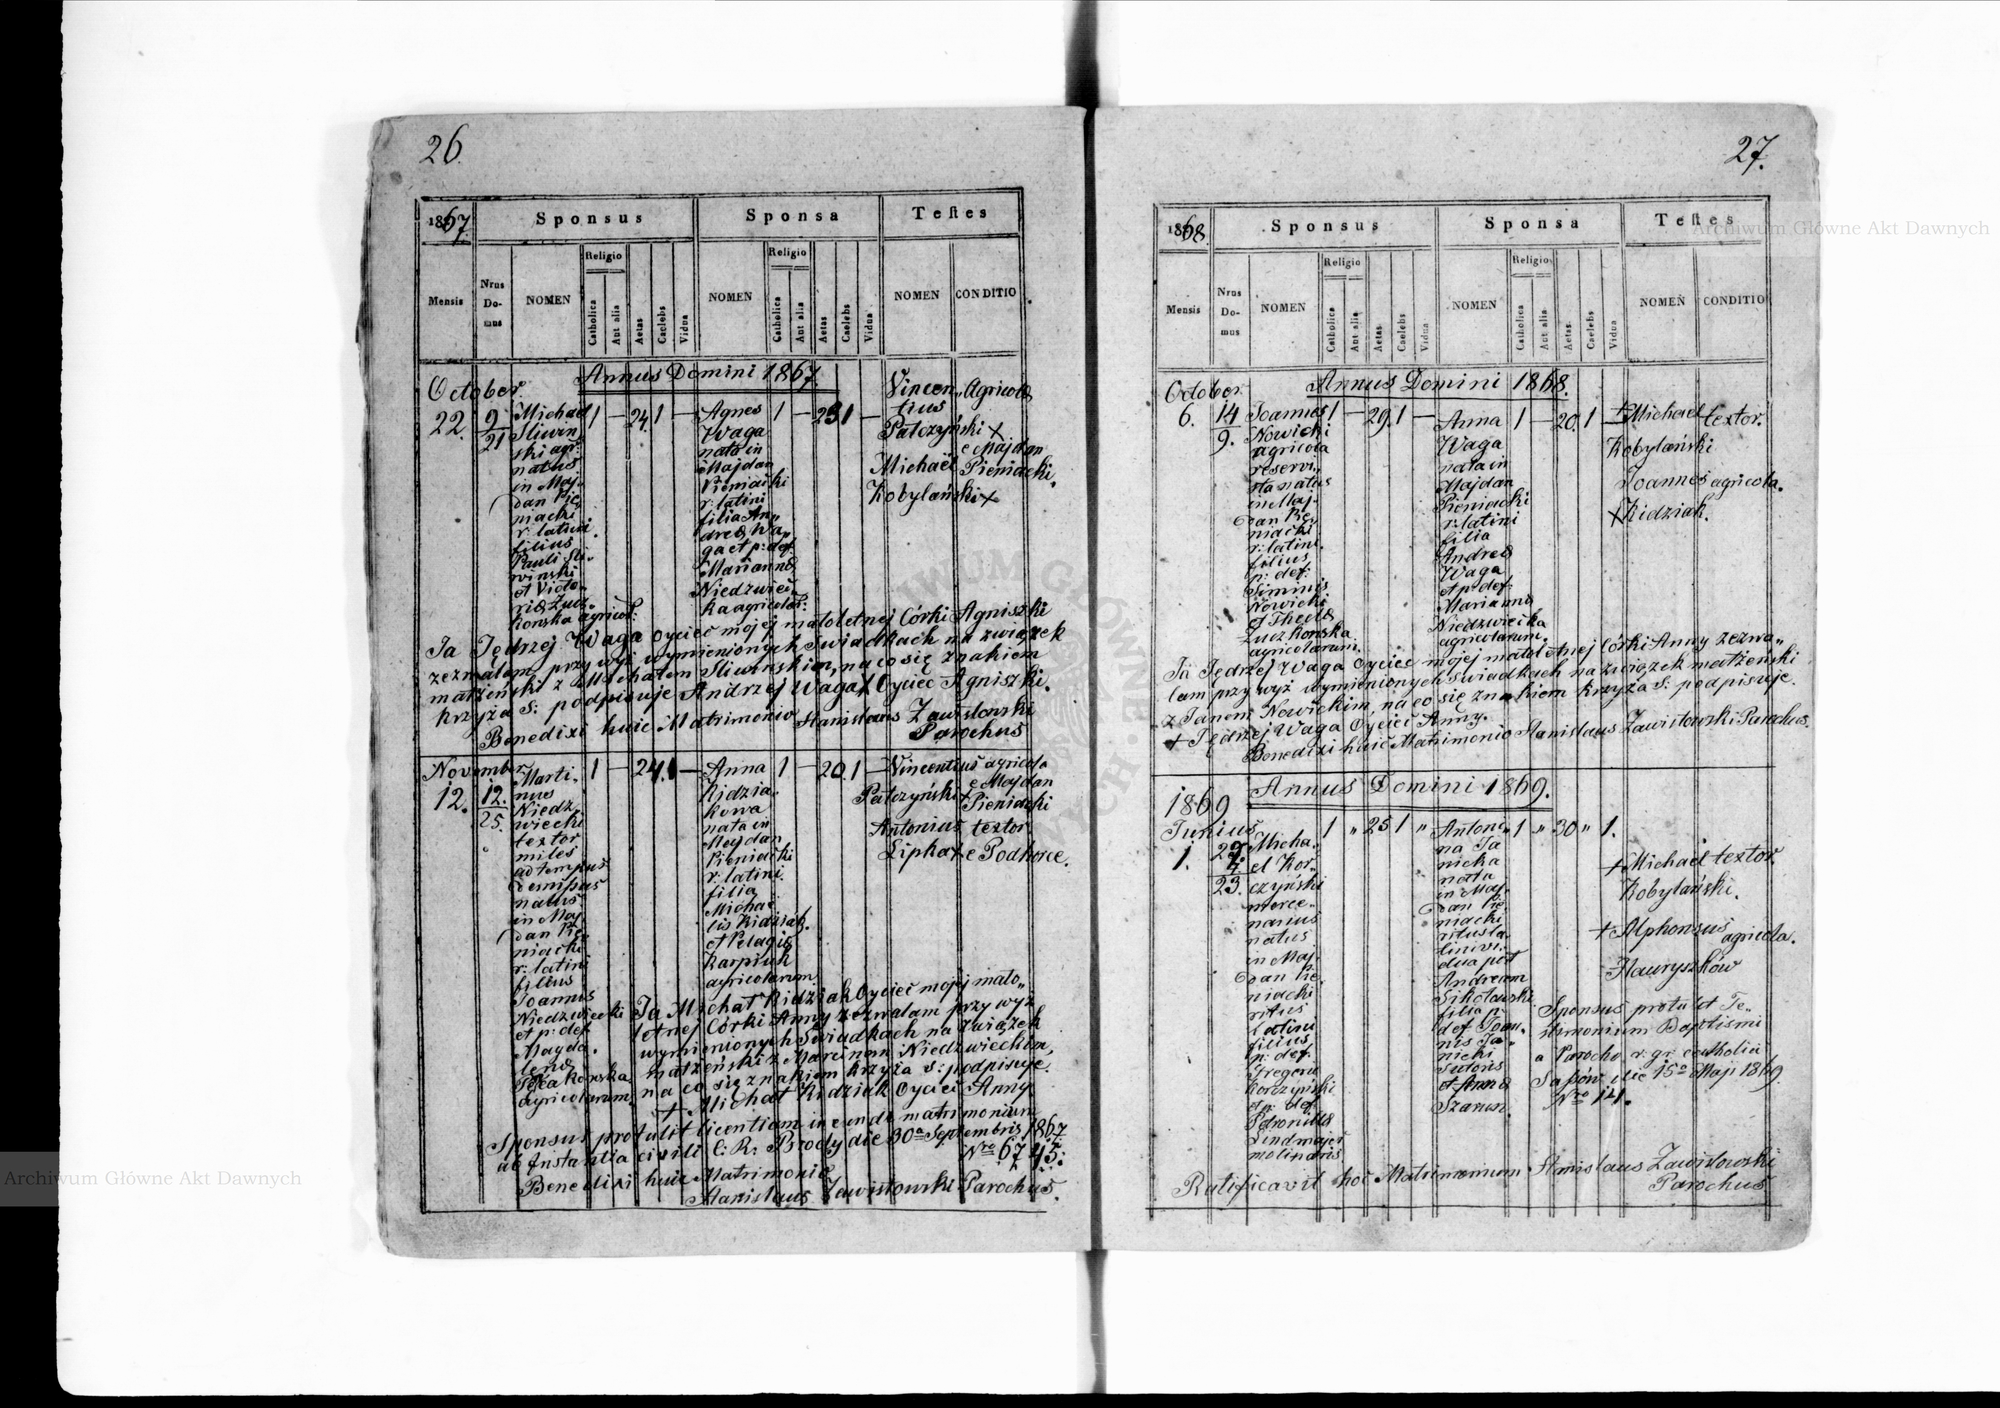 26.
1867.
Sponsus
Sponsa
Testes
Mensis
Nrus Domus
NOMEN
Religio
Catholica
Aut alia
Aetas
Caelebs
Vidua
NOMEN
Religio
Catholica
Aut alia
Aetas
Caelebs
Vidua
NOMEN
CONDITIO
Annus Domini 1867.
October.
22.
9
21
Michael
Sliwin
ski agr:
natus
in Maj
dan Pie
niacki
r: latini
filius
Pauli Sli
winski
et Victo
riae Zucz
konska agricol:
1 — 24. 1 —
Agnes
Waga
nata in
Majdan
Pieniacki
r: latini
filia An„
dreae Wa„
ga et p: def.
Mariannae
Niedzwiec
ka agricolar:
1 — 23 1 —
Vincen„
tius
Patczyński x
Agricola
e Majdan
Pieniacki.
Michaël
Kobylański x
Ja Jędrzej Waga Oyciec mojej małoletnej Córki Agniszki
zezwalam przy wyż wymienionych Swiadkach na związek
małżeński z Michałem Sliwinskiem, na co się znakiem
krzyża S: podpisuje Andrzej Waga x Oyciec Agniszki.
Benedixi huic Matrimonio Stanislaus Zawistowski
Parochus
November
12.
12.
25.
Marti
nus
Niedz
wiecki
textor
miles
ad tempus
demissus
natus
in Maj
dan Pie
niacki
r: latini
filius
Joannis
Niedzwiecki
et p: def
Magda.
lenae
agricolarum
1 — 24. 1 —
Anna
Kidzia
kowa
nata in
Majdan
Pieniacki
r: latini
filia
Michae
lis Kidziak.
et Pelagiae
Karpiuk
agricolarum
1 — 20 1 —
Vincentius
Patczyński +
agricola
e Majdan
Pieniacki
Antonius
Lipka +
textor
e Podhorce.
Ja Michał Kidziak Oyciec mojej mało„
letnej Córki Anny zezwalam przy wyż
wymienionych Swiadkach na Związek
małżeński z Marcinem Niedzwieckim,
na co się znakiem krzyża S: podpisuje.
+ Michał Kidziak Oyciec Anny
Sponsus protulit licentiam ineundi matrimonium
ab Instantia civili C: R: Brody die 30a Septembris 1867
Nro 6745:
Benedixi huic Matrimonio
Stanislaus Zawistowski Parochus.
27.
1868.
Sponsus
Sponsa
Testes
Mensis
Nrus Domus
NOMEN
Religio
Catholica
Aut alia
Aetas
Caelebs
Vidua
NOMEN
Religio
Catholica
Aut alia
Aetas.
Caelebs
Vidua
NOMEN
CONDITIO
Annus Domini 1868.
October.
6.
14
9.
Joannes
Nowicki
agricola
reservi„
sta natus
in Maj
dan Pie
niacki
r: latini.
filius
p: def:
Simonis
Nowicki
et Theclae
Zuczkonska
agricolarum.
1 — 29. 1 —
Anna
Waga
nata in
Majdan
Pieniacki
r: latini
filia
Andreae
Waga
et p: def
Mariannae
Niedzwiecka
agricolarum.
1 — 20. 1 —
+ Michael
Kobylański
textor.
Joannes
x Kidziak.
agricola.
Ja Jędrzej Waga Oyciec mojej małoletnej Córki Anny zezwa„
lam przy wyż wymienionych Swiadkach na związek małżeński
z Janem Nowickim, na co się znakiem krzyża S: podpisuje.
+ Jędrzej Waga Oyciec Anny.
Benedixi huic Matrimonio Stanislaus Zawistowski Parochus.
Annus Domini 1869.
1869
Junius
1.
23.
Micha.
el Kor„
czyński
merce„
narius
natus
in Maj
dan Pie
niacki
ritus
latini
filius
p: def:
Gregorii
Korczyński
et p: def
Petronillae
Lindmajer
molinaris
1 „ 25 1 „
Antoni
na Ja
nicka
nata
in Maj
dan Pie
niacki
ritus la
tini vi„
dua post
Andream
Sikolowski
filia p:
def Joan„
nis Ja„
nicki
Sutoris
et Anna
Szarun.
1 „ 30 „ 1.
+ Michaël
Kobylański.
textor
+ Alphonzus
Hauryszków
agricola.
Sponsus protulit Te„
stimonium Baptismi
a Parocho r: gr: catholici
Sapów die 15o Maji 1869.
Nro 141.
Ratificavit hoc Matrimonium Stanislaus Zawistowski
Parochus
Archiwum Główne Akt Dawnych
Archiwum Główne Akt Dawnych